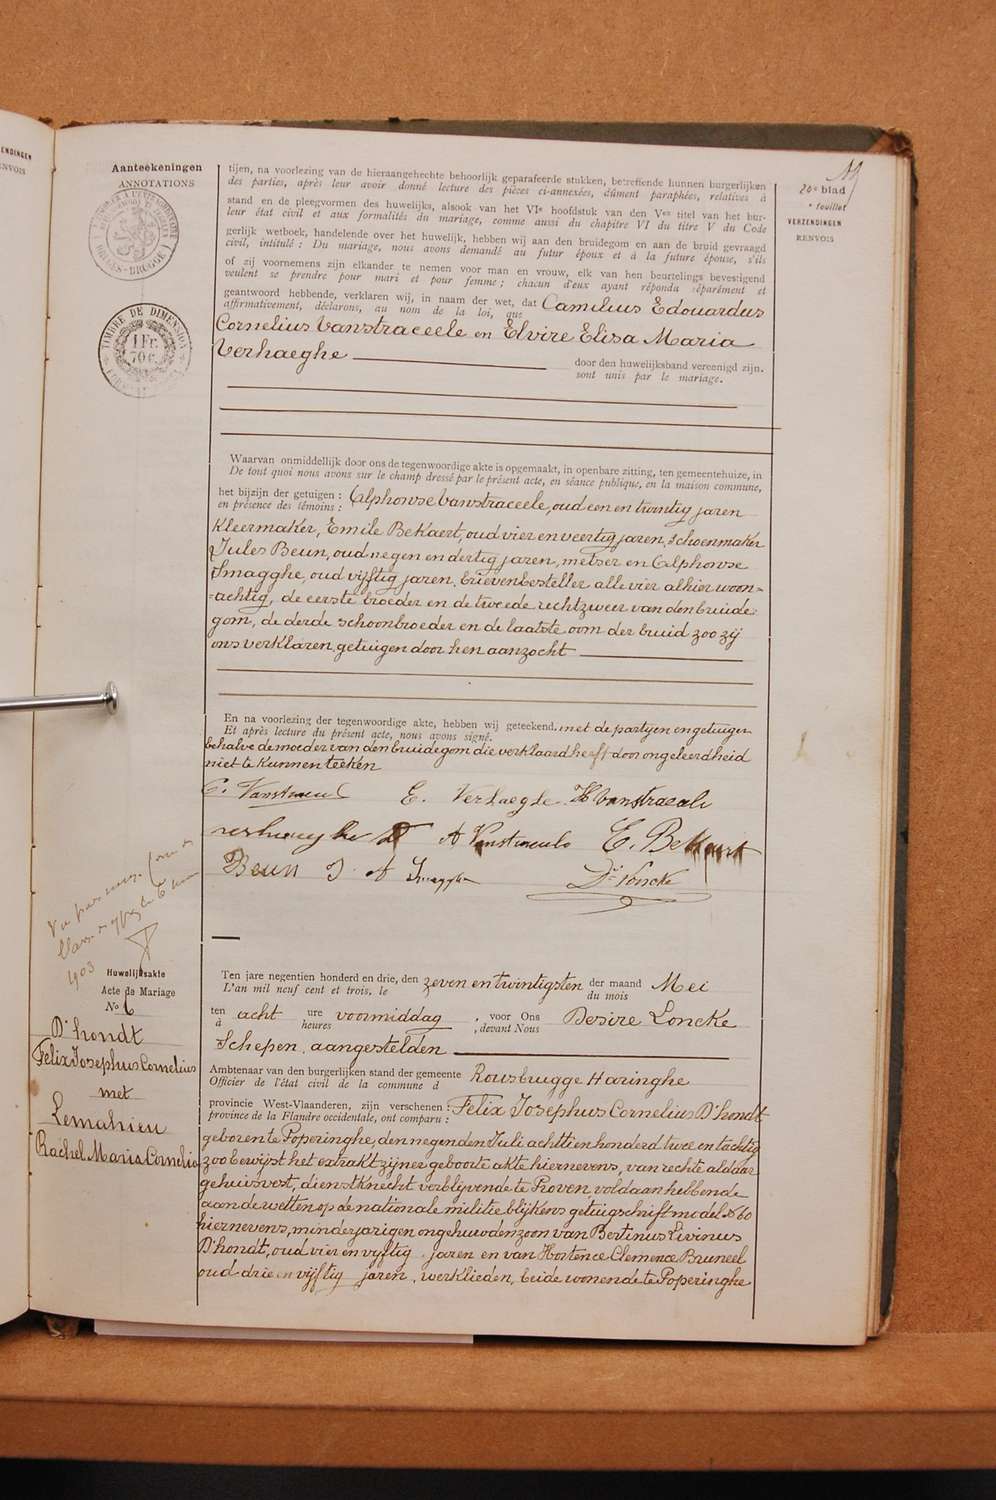 ENDINGEN
ENVOIS
Aanteekeningen
ANNOTATIONS
BRUGES-BRUGGE
TIMBRE DE DIMENSION
1 Fr.
70 c.
19
20e blad
feuillet
VERZENDINGEN
RENVOIS
tijen, na voorlezing van de hieraangehechte behoorlijk geparafeerde stukken, betreffende hunnen burgerlijken
des parties, après leur avoir donné lecture des pièces ci-annexées, dûment paraphées, relatives à
stand en de pleegvormen des huwelijks, alsook van het VIe hoofdstuk van den Ven titel van het bur-
leur état civil et aux formalités du mariage, comme aussi du chapitre VI du titre V du Code
gerlijk wetboek, handelende over het huwelijk, hebben wij aan den bruidegom en aan de bruid gevraagd
civil, intitulé : Du mariage, nous avons demandé au futur époux et à la future épouse, s'ils
of zij voornemens zijn elkander te nemen voor man en vrouw, elk van hen beurtelings bevestigend
veulent se prendre pour mari et pour femme ; chacun d'eux ayant répondu séparément et
geantwoord hebbende, verklaren wij, in naam der wet, dat Camilius Edouardus
affirmativement, déclarons, au nom de la loi, que
Cornelius Vanstraceele en Elvire Elisa Maria
Verhaeghe
door den huwelijksband vereenigd zijn.
sont unis par le mariage.
Waarvan onmiddellijk door ons de tegenwoordige akte is opgemaakt, in openbare zitting, ten gemeentehuize, in
De tout quoi nous avons sur le champ dressé par le présent acte, en séance publique, en la maison commune,
het bijzijn der getuigen : Alphonse Vanstraceele, oud een en twintig jaren
en présence des témoins :
Kleermaker, Emile Bekaert, oud vier en veertig jaren, schoenmaker
Jules Beun, oud negen en dertig jaren, metser en Alphonse
Smagghe, oud vijftig jaren, brievenbesteller alle vier alhier woon=
=achtig, de eerste broeder en de tweede rechtzweer van den bruide=
gom, de derde schoonbroeder en de laatste oom der bruid zoo zij
ons verklaren, getuigen door hen aanzocht
En na voorlezing der tegenwoordige akte, hebben wij geteekend. met de partijen en getuigen
Et après lecture du présent acte, nous avons signé.
behalve de moeder van den bruidegom die verklaard heeft door ongeleerdheid
niet te kunnen teeken
C. Vanstraceel E. Verhaeghe H Vanstracele
verhaeghe A Vanstraceele E. Bekaert
Beun J A Smagghe Dr Loncke
1903
Huwelijksakte
Acte de Mariage
No 6
D'hondt
Felix Josephus Cornelius
met
Lemahieu
Rachel Maria Cornelia
Ten jare negentien honderd en drie, den zeven en twintigsten der maand Mei
L'an mil neuf cent et trois, le du mois
ten acht ure voormiddag, voor Ons Desire Loncke
à heures , devant Nous
Schepen, aangestelden
Ambtenaar van den burgerlijken stand der gemeente Rousbrugge Haringhe
Officier de l'état civil de la commune d
provincie West-Vlaanderen, zijn verschenen : Felix Josephus Cornelius D'hondt
province de la Flandre occidentale, ont comparu :
geboren te Poperinghe, den negenden Juli achttien honderd twee en tachtig
zoo bewijst het extrakt zijner geboorte akte hiernevens, van rechte aldaar
gehuisvest, dienstknecht verblijvende te Proven, voldaan hebbende
aan de wetten op de nationale militie blijkens getuigschrift model No 60
hiernevens, minderjarigen ongehuwden zoon van Bertinus Livinus
D'hondt, oud vier en vijftig jaren en van Hortence Clemence Bruneel
oud drie en vijftig jaren, werklieden, beide wonende te Poperinghe